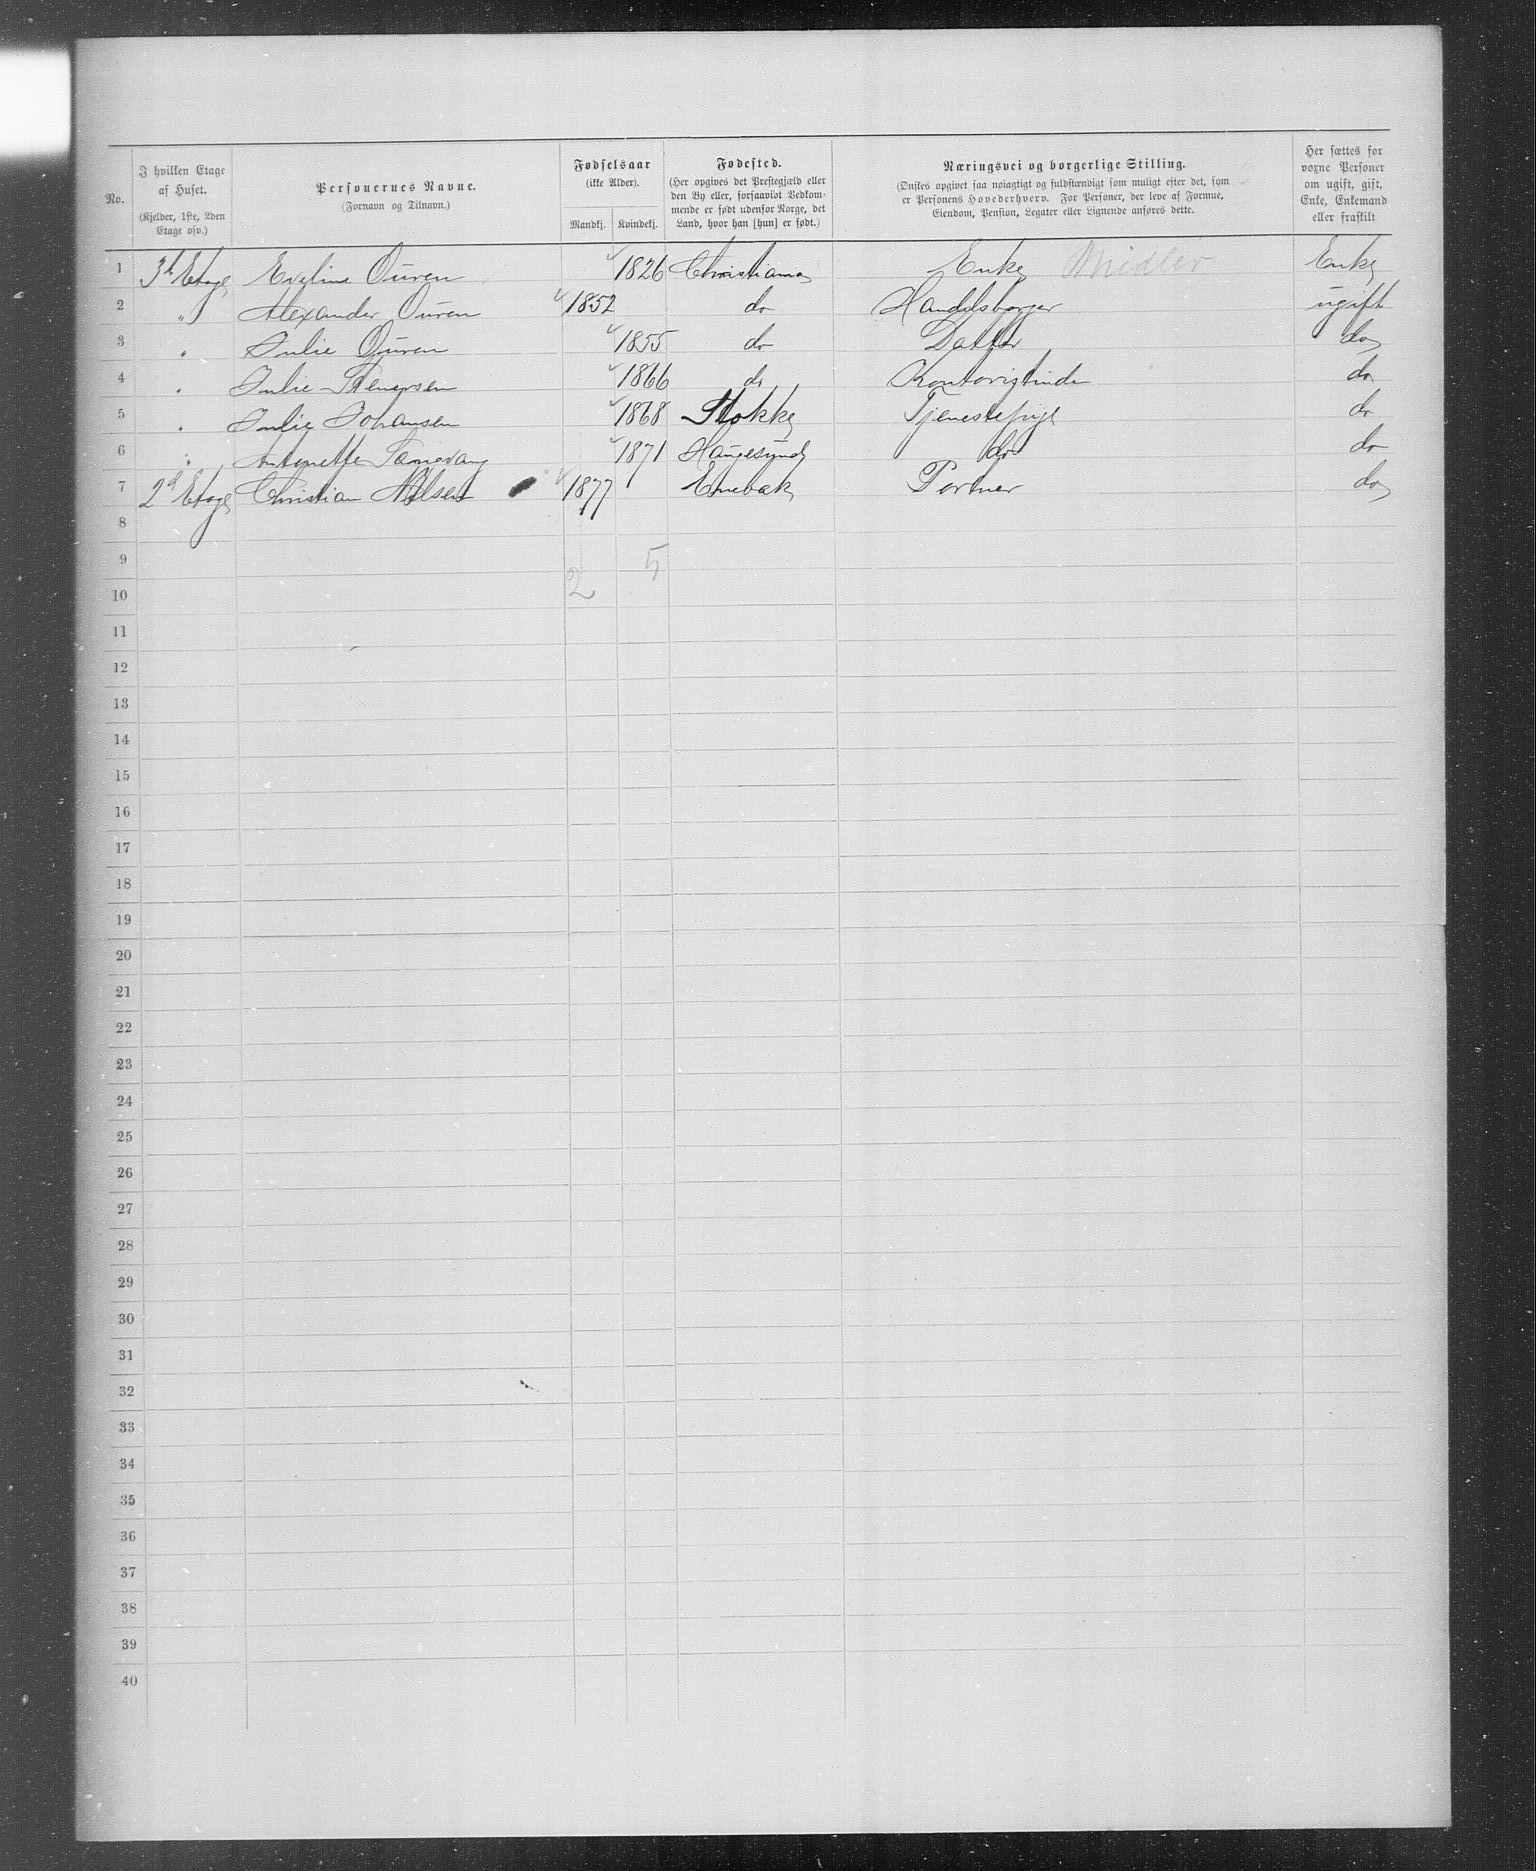 No. | I hvilken Etage af Huset. (Kjelder, 1ste, 2den Etage osv.) | Personernes Navne. (Fornavn og Tilnavn.) | Fødselsaar (ikke Alder). Mandkj. | Kvindekj. | Fødested. (Her opgives det Prestegjæld eller den By eller, forsaavidt Vedkommende er født udenfor Norge, det Land, hvor han [hun] er født.) | Næringsvei og borgerlige Stilling. (Ønskes opgivet saa nøiagtigt og fuldstændigt som muligt efter det, som er Personens Hovederhverv. For Personer, der leve af Formue, Eiendom, Pension, Legater eller Lignende anføres dette.) | Her sættes for voxne Personer om ugift, gift, Enke, Enkemand eller fraskilt
1 3d Etage Eveline Ouren 1826 Christiania Enke Midler Enke
2 " Alexander Ouren 1852 do Handelsborger ugift
3 " Julie Ouren 1855 do Datter do
4 " Julie Stenersen 1866 do Kontoristinde do
5 " Julie Johansen 1868 Stokke Tjenestepige do
6 " Antonette 1871 Haugesund do do
7 2d Etage Christian Nilsen 1877 Enebak Portner do
8
9 5
10 2
11
12
13
14
15
16
17
18
19
20
21
22
23
24
25
26
27
28
29
30
31
32
33
34
35
36
37
38
39
40